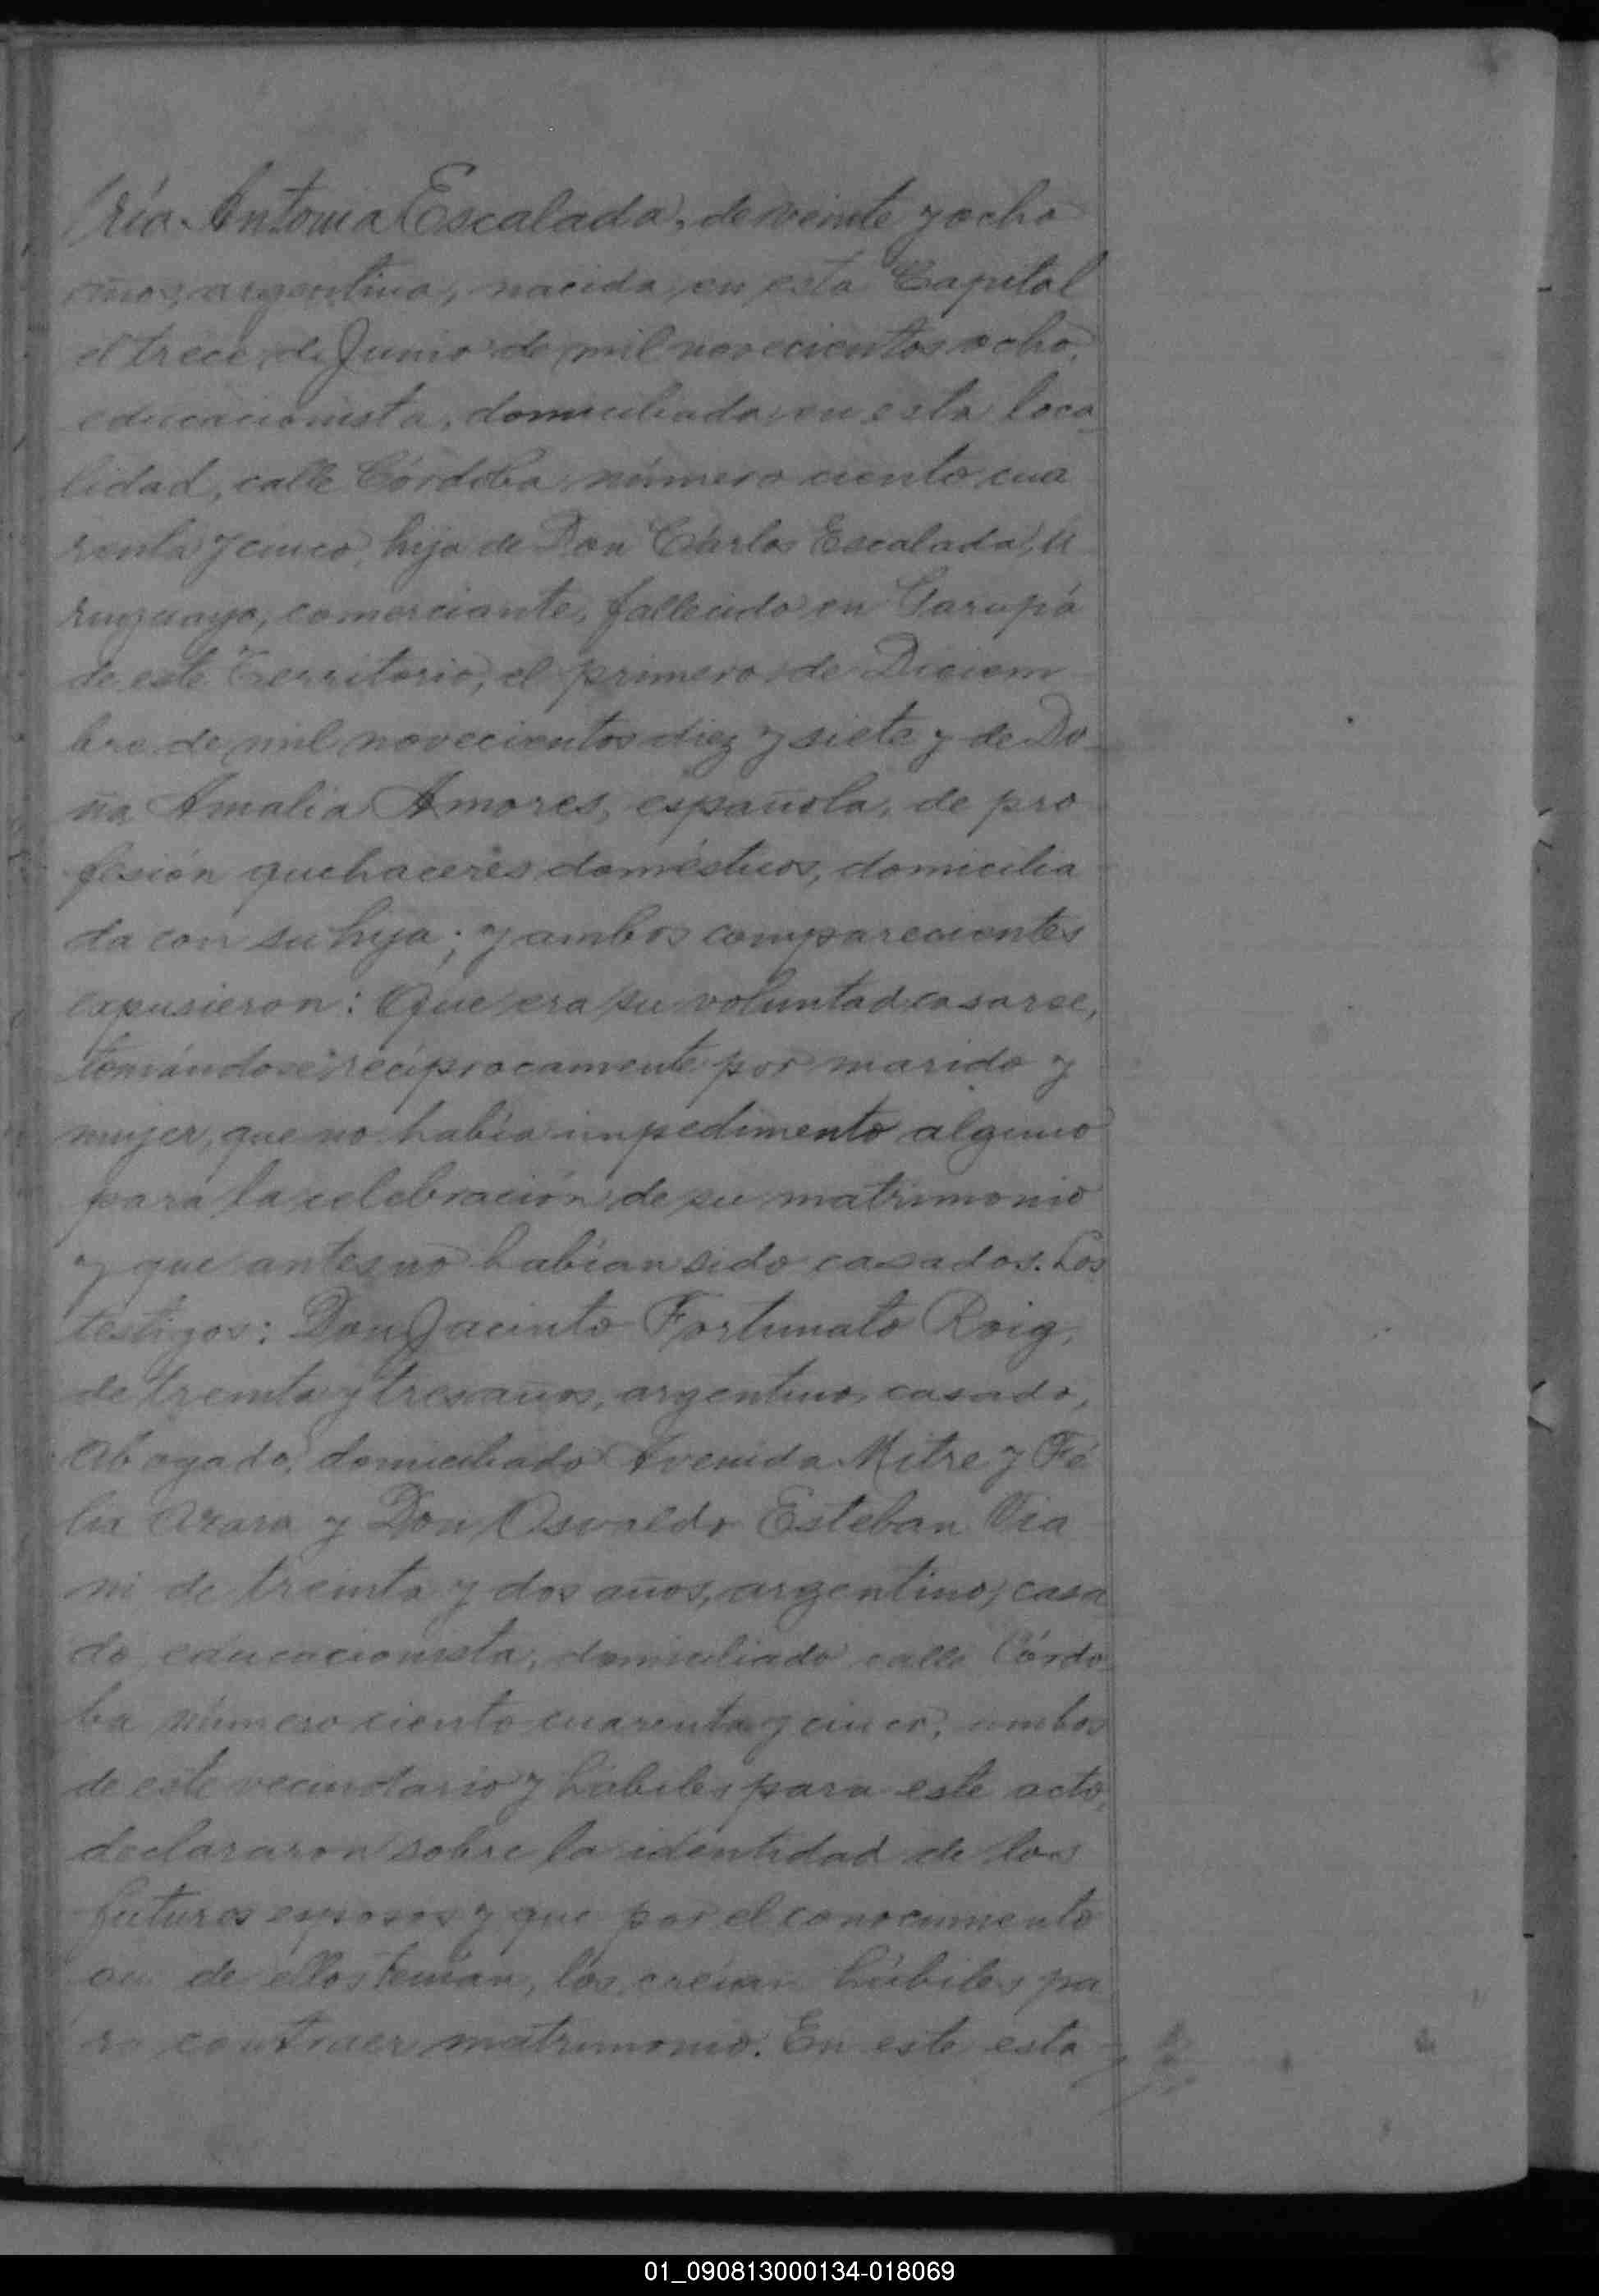 ría Antonia Escalada, de veinte y ocho
años, argentina, nacida en esta Capital
el trece de Junio de mil novecientos ocho,
educacionista, domiciliada en esta loca
lidad, calle Córdoba número ciento cua
renta y cinco, hija de Don Cárlos Escalada, u
ruguayo, comerciante, fallecido en Garupá
de este Territorio, el primero de Diciem
bre de mil novecientos diez y siete y de Do
ña Amalia Amores, española, de pro
fesión quehaceres domésticos, domicilia
da con su hija; y ambos comparecientes
expusieron: Que era su voluntad casarse,
tomándose recíprocamente por marido y
mujer, que no había impedimento alguno
para la celebración de su matrimonio
y que antes no habían sido casados. Los
testigos: Don Jacinto Fortunato Roig,
de treinta y tres años, argentino, casado,
abogado, domiciliado Avenida Mitre y Fé
lix Azara y Don Osvaldo Esteban Via
ni de treinta y dos años, argentino, casa
do, educacionista, domiciliado calle Córdo
ba número ciento cuarenta y cinco, ambos
de este vecindario y hábiles para este acto,
declararon sobre la identidad de los
futuros esposos y que por el conocimiento
de ellos tenían, los creían hábiles pa
ra contraer matrimonio. En este esta
01_090813000134-018069